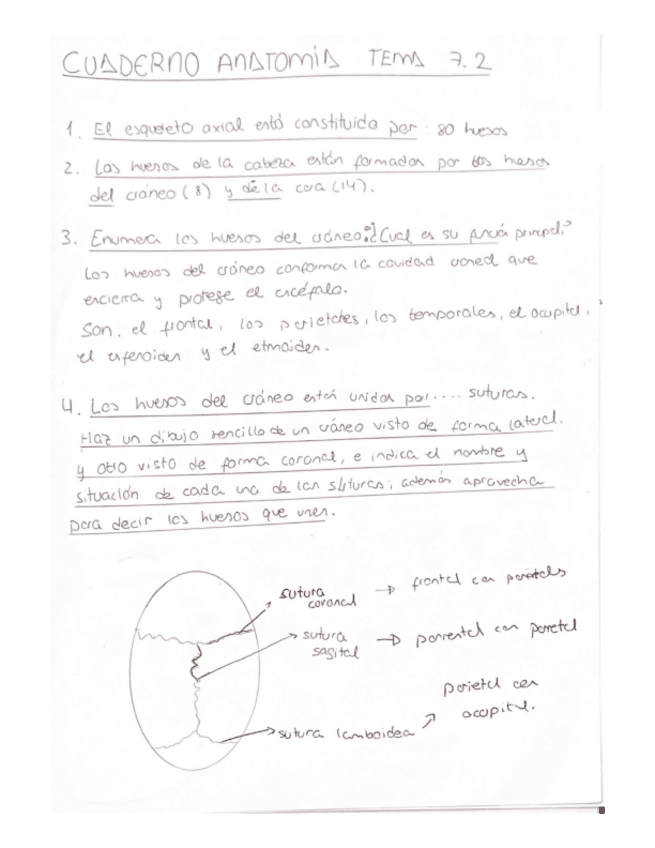 CUADERNO ANATOMIA TEMA 7.2
1. El esqueleto axial está constituido por: 80 huesos
2. Los huesos de la cabeza están formados por los huesos
del cráneo (8) y de la cara (14).
3. Enumera los huesos del cráneo. ¿Cual es su función principal?
Los huesos del cráneo conforma la cavidad craneal que
encierra y protege el encéfalo.
Son: el frontal, los parietales, los temporales, el occipital,
el esfenoides y el etmoides.
4. Los huesos del cráneo están unidos por.... suturas.
Haz un dibujo sencillo de un cráneo visto de forma lateral.
y otro visto de forma coronal, e indica el nombre y
situación de cada una de las suturas; además aprovecha
para decir los huesos que unen.
sutura
coronal → frontal con parietales
sutura
sagital → parietal con parietal
parietal con
occipital.
sutura lamboidea